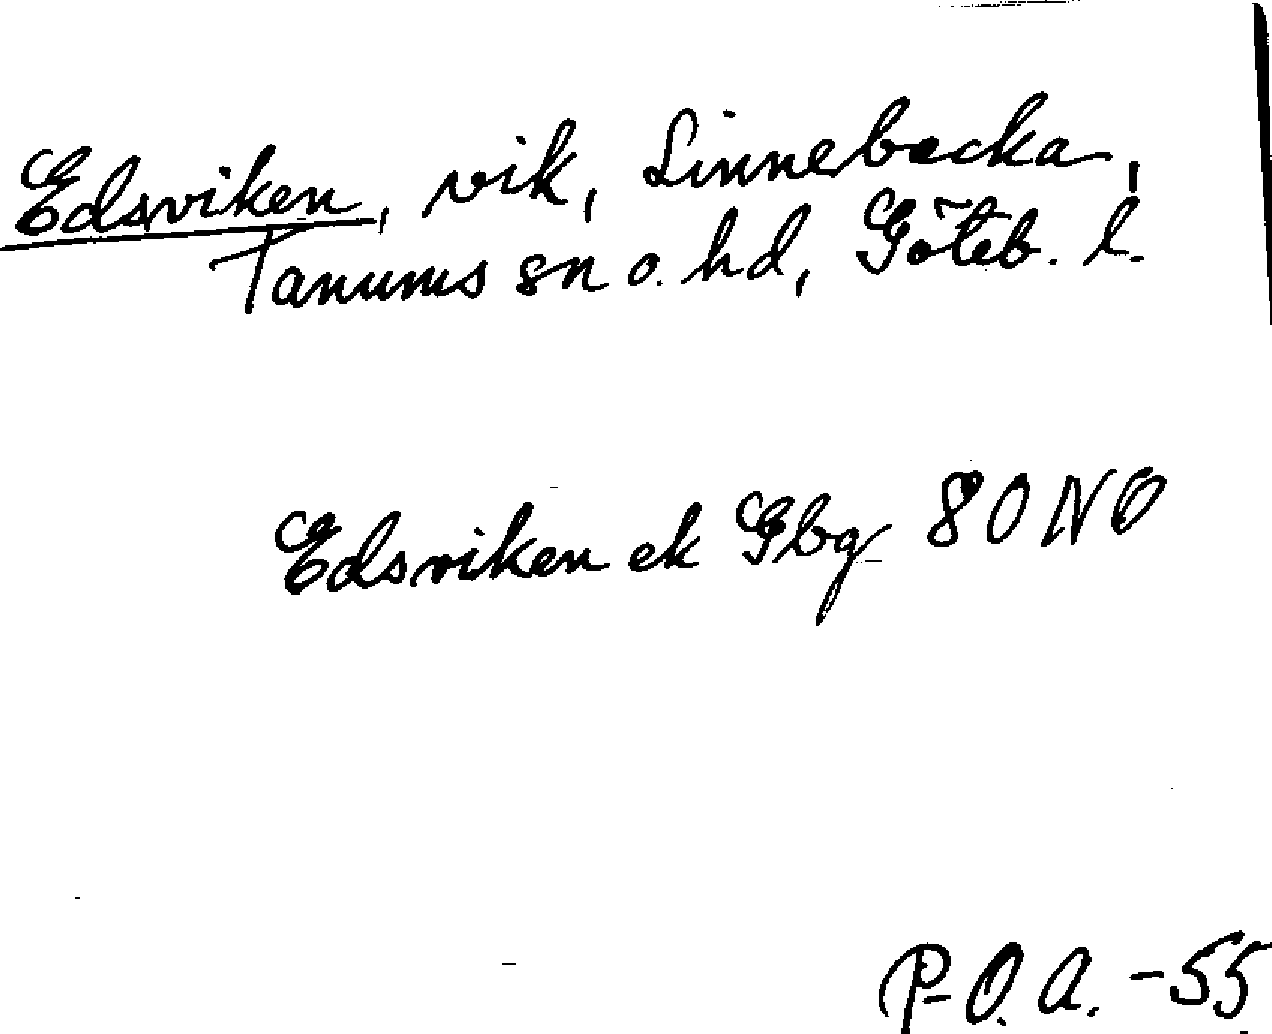 Edsviken, vik, Linnebacka,
Tanums sn o. hd, Göteb. l.
Edsviken ek Gbg 80 NO
P-O. A. -55